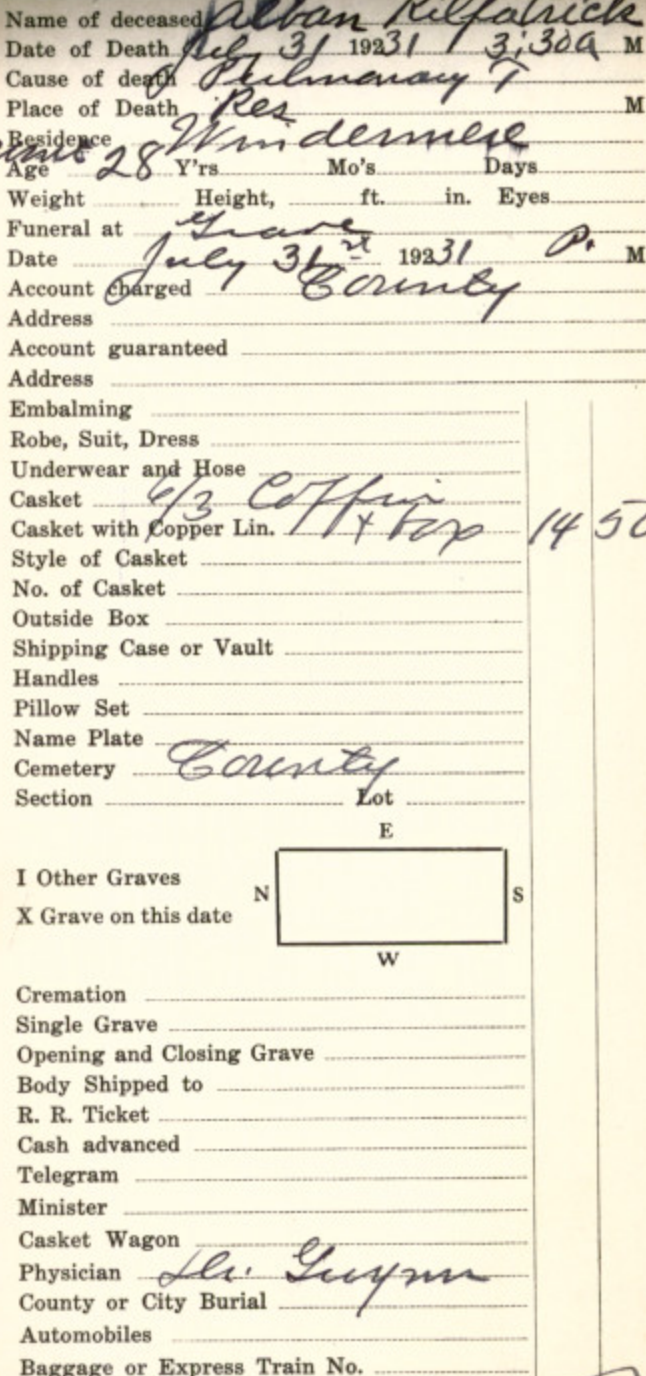 Name of deceased Alban Kilpatrick
Date of Death July 31 1931 3:30a M
Cause of death Pulmonary T
Place of Death Res M
Residence Windermere
Age 28 Y'rs Mo's Days
Weight Height, ft. in. Eyes
Funeral at Grave
Date July 31st 1931 P. M
Account charged County
Address
Account guaranteed
Address
Embalming
Robe, Suit, Dress
Underwear and Hose
Casket 6/3 Coffin
Casket with Copper Lin. + Box 14 50
Style of Casket
No. of Casket
Outside Box
Shipping Case or Vault
Handles
Pillow Set
Name Plate
Cemetery County
Section Lot
E
I Other Graves
N S
X Grave on this date
W
Cremation
Single Grave
Opening and Closing Grave
Body Shipped to
R. R. Ticket
Cash advanced
Telegram
Minister
Casket Wagon
Physician Dr. Guynn
County or City Burial
Automobiles
Baggage or Express Train No.